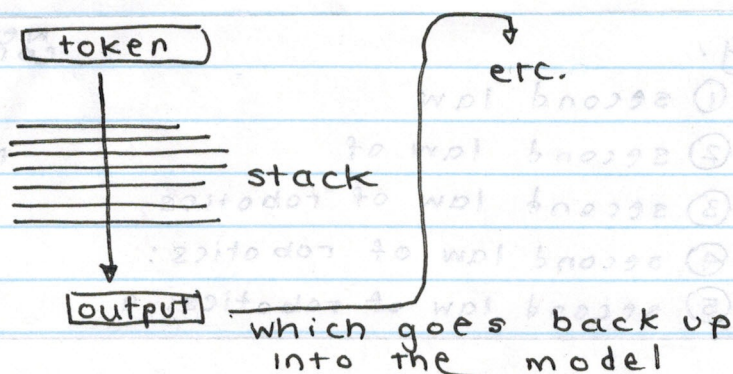 token
etc.
stack
output
which goes back up
into the model